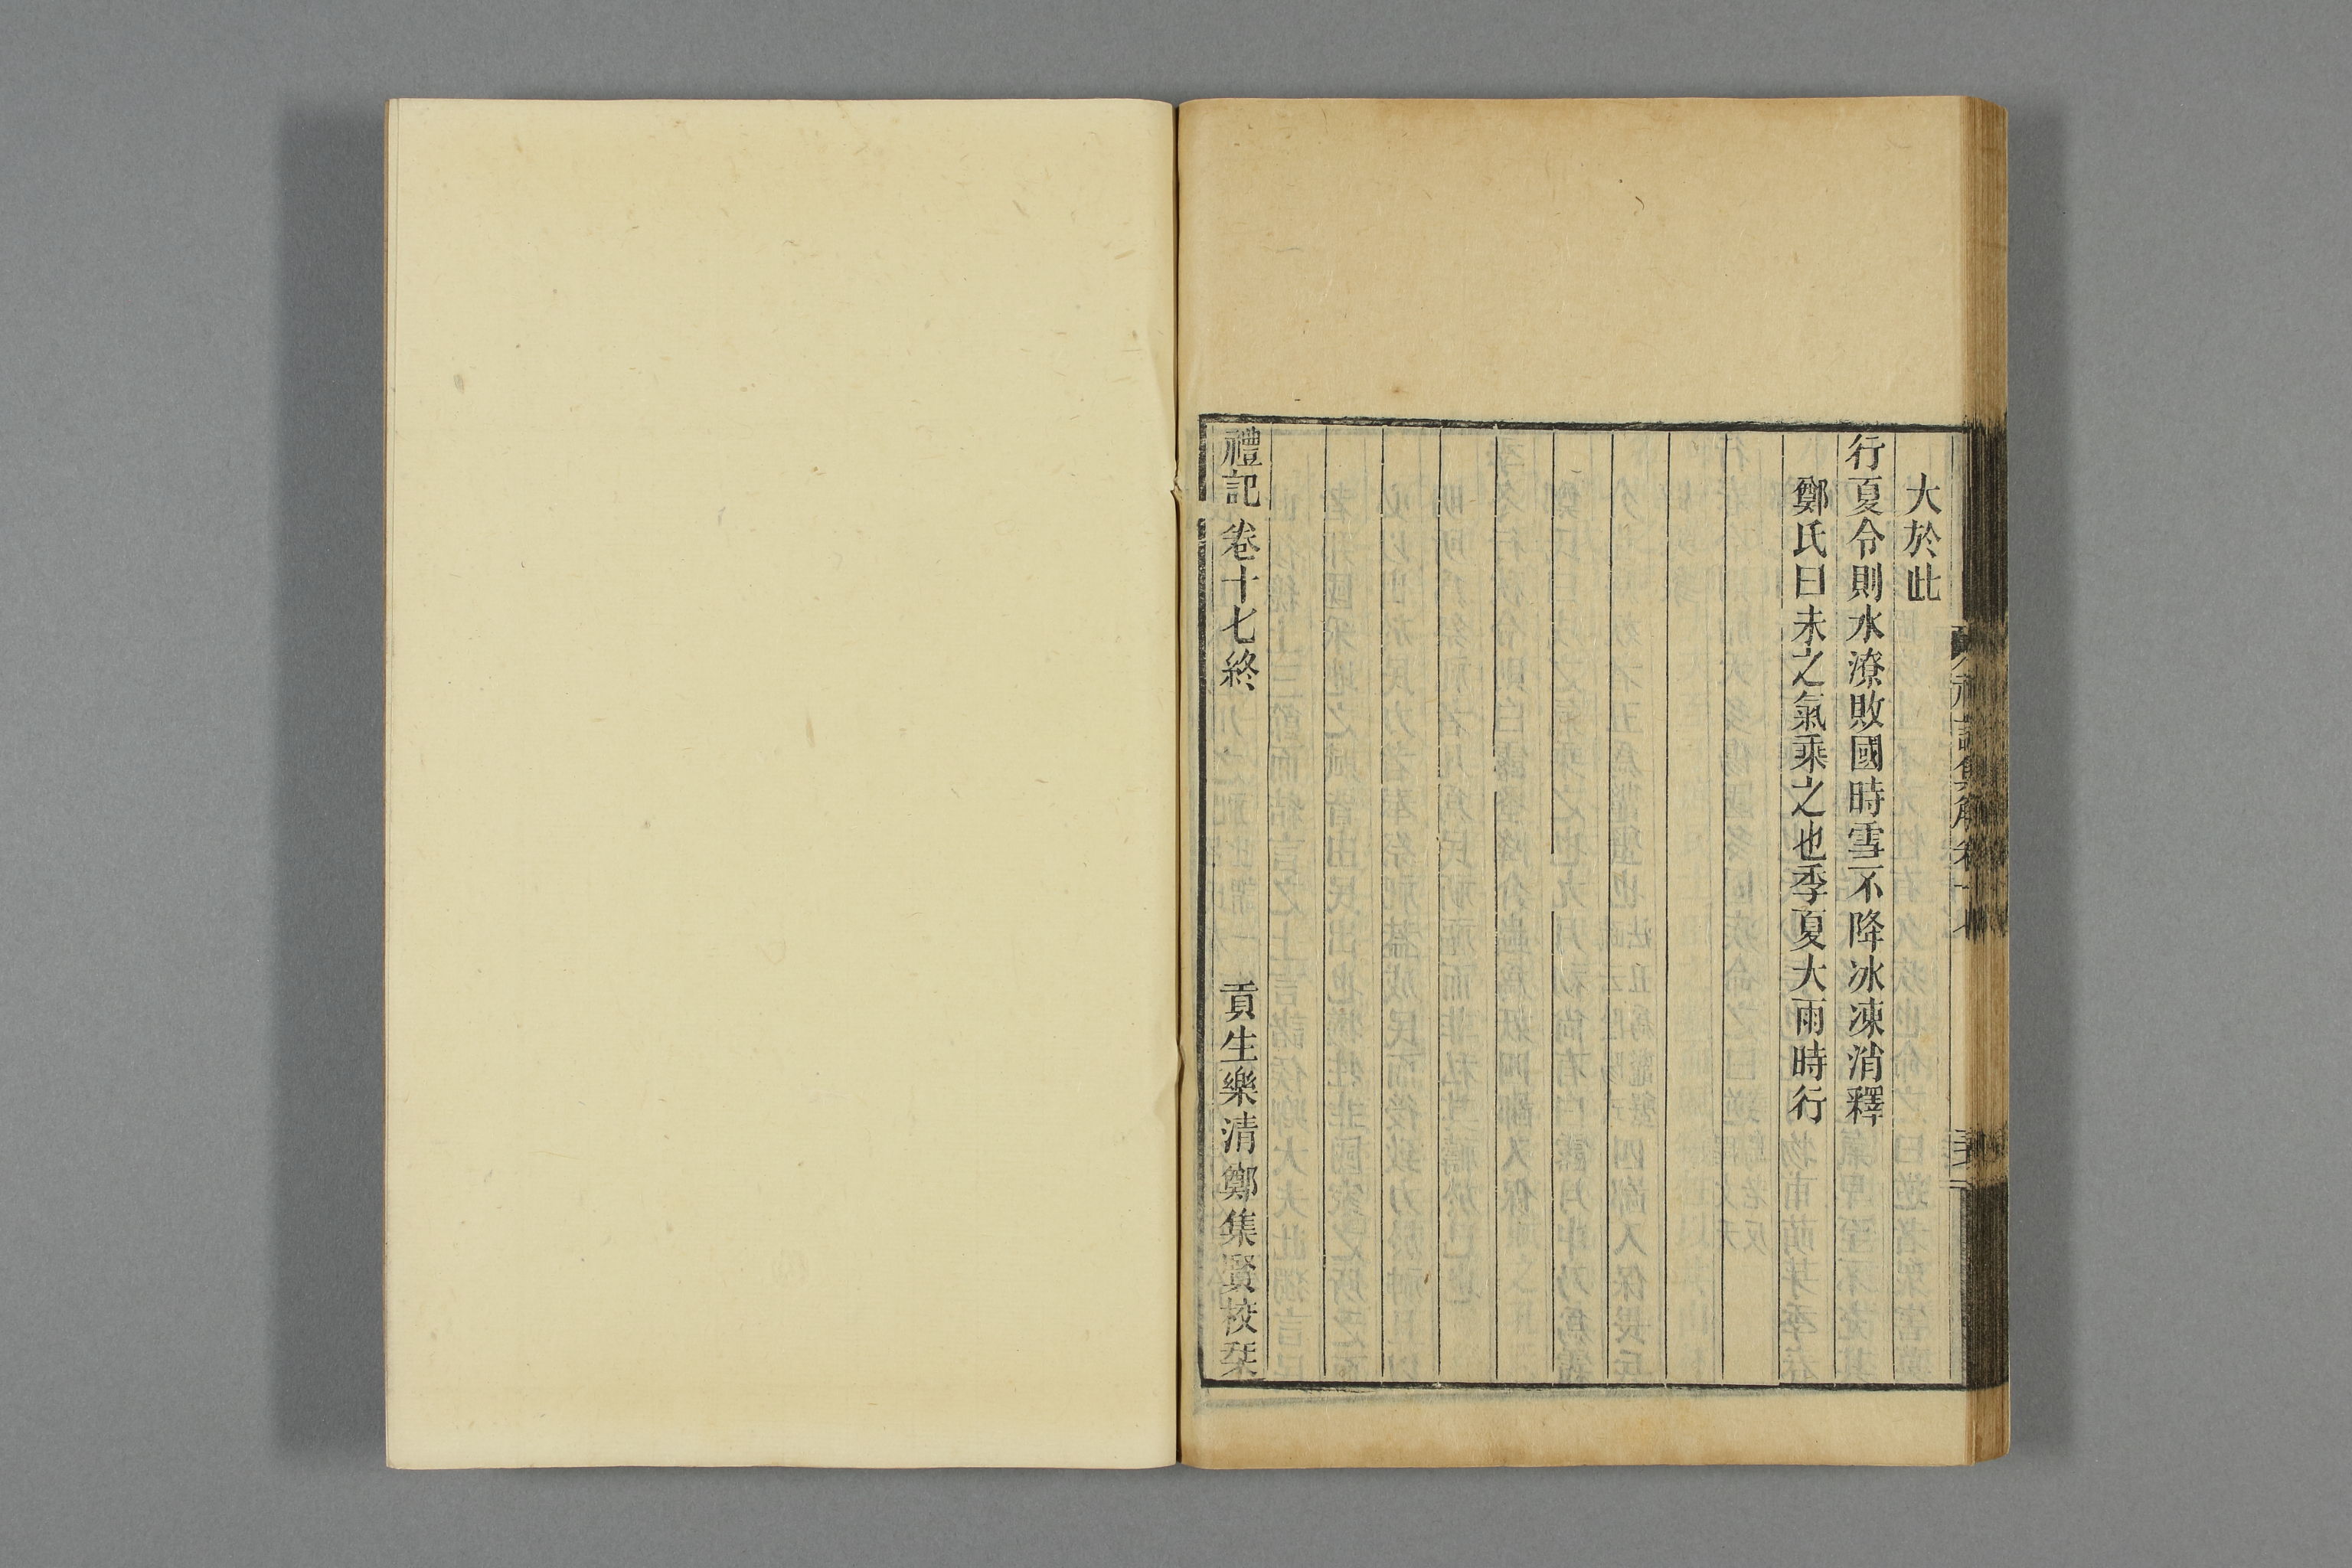 大於此
行夏令則水潦敗國時雪不降冰凍消釋
鄭氏曰未之氣乘之也季夏大雨時行
禮記卷十七終 貢生樂清鄭集賢校栞